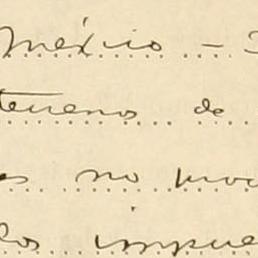 México -
terrenos de
no
los impue